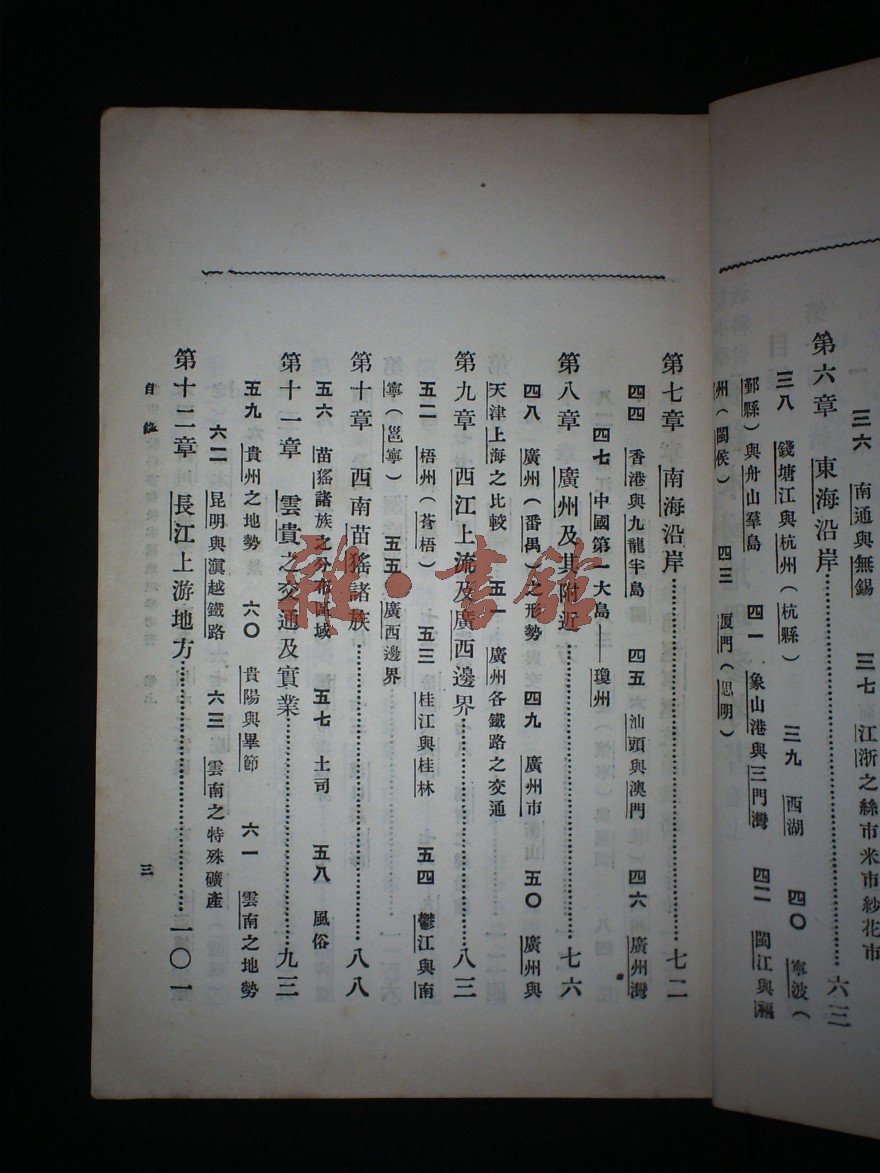 三六　南通與無錫　三七　江浙之絲市米市紗花市
第六章　東海沿岸…………六三
三八　錢塘江與杭州（杭縣）　三九　西湖　四〇　寧波（
鄞縣）與舟山羣島　四一　象山港與三門灣　四二　閩江與福
州（閩侯）　四三　厦門（思明）
第七章　南海沿岸…………七二
四四　香港與九龍半島　四五　汕頭與澳門　四六　廣州灣
四七　中國第一大島——瓊州
第八章　廣州及其附近…………七六
四八　廣州（番禺）之形勢　四九　廣州市　五〇　廣州與
天津上海之比較　五一　廣州各鐵路之交通
第九章　西江上流及廣西邊界…………八三
五二　梧州（蒼梧）　五三　桂江與桂林　五四　鬱江與南
寧（邕寧）　五五　廣西邊界
第十章　西南苗猺諸族…………八八
五六　苗猺諸族之分布區域　五七　土司　五八　風俗
第十一章　雲貴之交通及實業…………九三
五九　貴州之地勢　六〇　貴陽與畢節　六一　雲南之地勢
六二　昆明與滇越鐵路　六三　雲南之特殊礦產
第十二章　長江上游地方…………一〇一
目錄　三
雜·書館